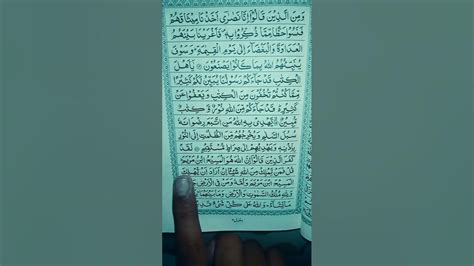 وَمِنَ الَّذِينَ قَالُوٓا إِنَّا نَصٰرٰٓى أَخَذْنَا مِيثَاقَهُمْ
فَنَسُوا حَظًّا مِّمَّا ذُكِّرُوا بِهٖ فَأَغْرَيْنَا بَيْنَهُمُ
الْعَدَاوَةَ وَالْبَغْضَآءَ إِلٰى يَوْمِ الْقِيٰمَةِ وَسَوْفَ
يُنَبِّئُهُمُ اللّٰهُ بِمَا كَانُوا يَصْنَعُونَ يٰٓأَهْلَ
الْكِتٰبِ قَدْ جَآءَكُمْ رَسُولُنَا يُبَيِّنُ لَكُمْ كَثِيرًا
مِّمَّا كُنْتُمْ تُخْفُونَ مِنَ الْكِتٰبِ وَيَعْفُوا عَنْ
كَثِيرٍ قَدْ جَآءَكُمْ مِّنَ اللّٰهِ نُورٌ وَّكِتٰبٌ
مُّبِينٌ يَّهْدِي بِهِ اللّٰهُ مَنِ اتَّبَعَ رِضْوَانَهٗ
سُبُلَ السَّلٰمِ وَيُخْرِجُهُمْ مِّنَ الظُّلُمٰتِ إِلَى النُّورِ
بِإِذْنِهٖ وَيَهْدِيهِمْ إِلٰى صِرَاطٍ مُّسْتَقِيمٍ لَقَدْ
كَفَرَ الَّذِينَ قَالُوٓا إِنَّ اللّٰهَ هُوَ الْمَسِيحُ ابْنُ مَرْيَمَ
قُلْ فَمَنْ يَّمْلِكُ مِنَ اللّٰهِ شَيْئًا إِنْ أَرَادَ أَنْ يُّهْلِكَ
الْمَسِيحَ ابْنَ مَرْيَمَ وَأُمَّهٗ وَمَنْ فِي الْأَرْضِ
وَلِلّٰهِ مُلْكُ السَّمٰوٰتِ وَالْأَرْضِ وَمَا بَيْنَهُمَا
مَا يَشَآءُ وَاللّٰهُ عَلٰى كُلِّ شَيْءٍ قَدِيرٌ